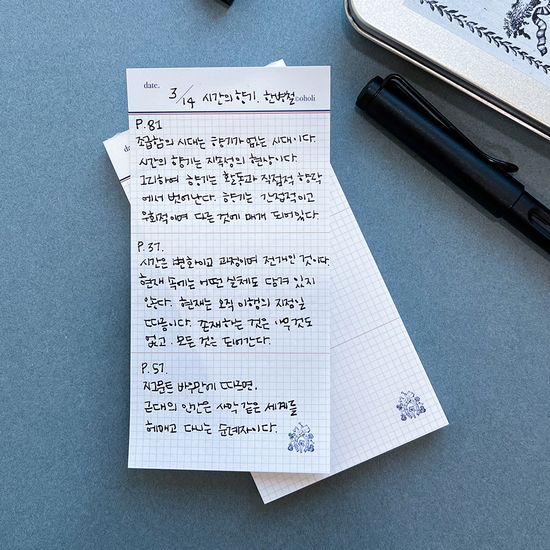 date.
3/14 시간의 향기. 한병철
oholi
P.81
조급함의 시대는 향기가 없는 시대이다.
시간의 향기는 지속성의 현상이다.
그리하여 향기는 활동과 직접적 향락
에서 벗어난다. 향기는 간접적이고
우회적이며 다른 것에 매개 되어있다.
P.37.
시간은 변화이고 과정이며 전개인 것이다.
현재 속에는 어떤 실체도 담겨 있지
않다. 현재는 오직 이행의 지점일
따름이다. 존재하는 것은 아무것도
없고. 모든 것은 되어간다.
P.57.
지그문트 바우만에 따르면,
근대의 인간은 사막 같은 세계를
헤매고 다니는 순례자이다.